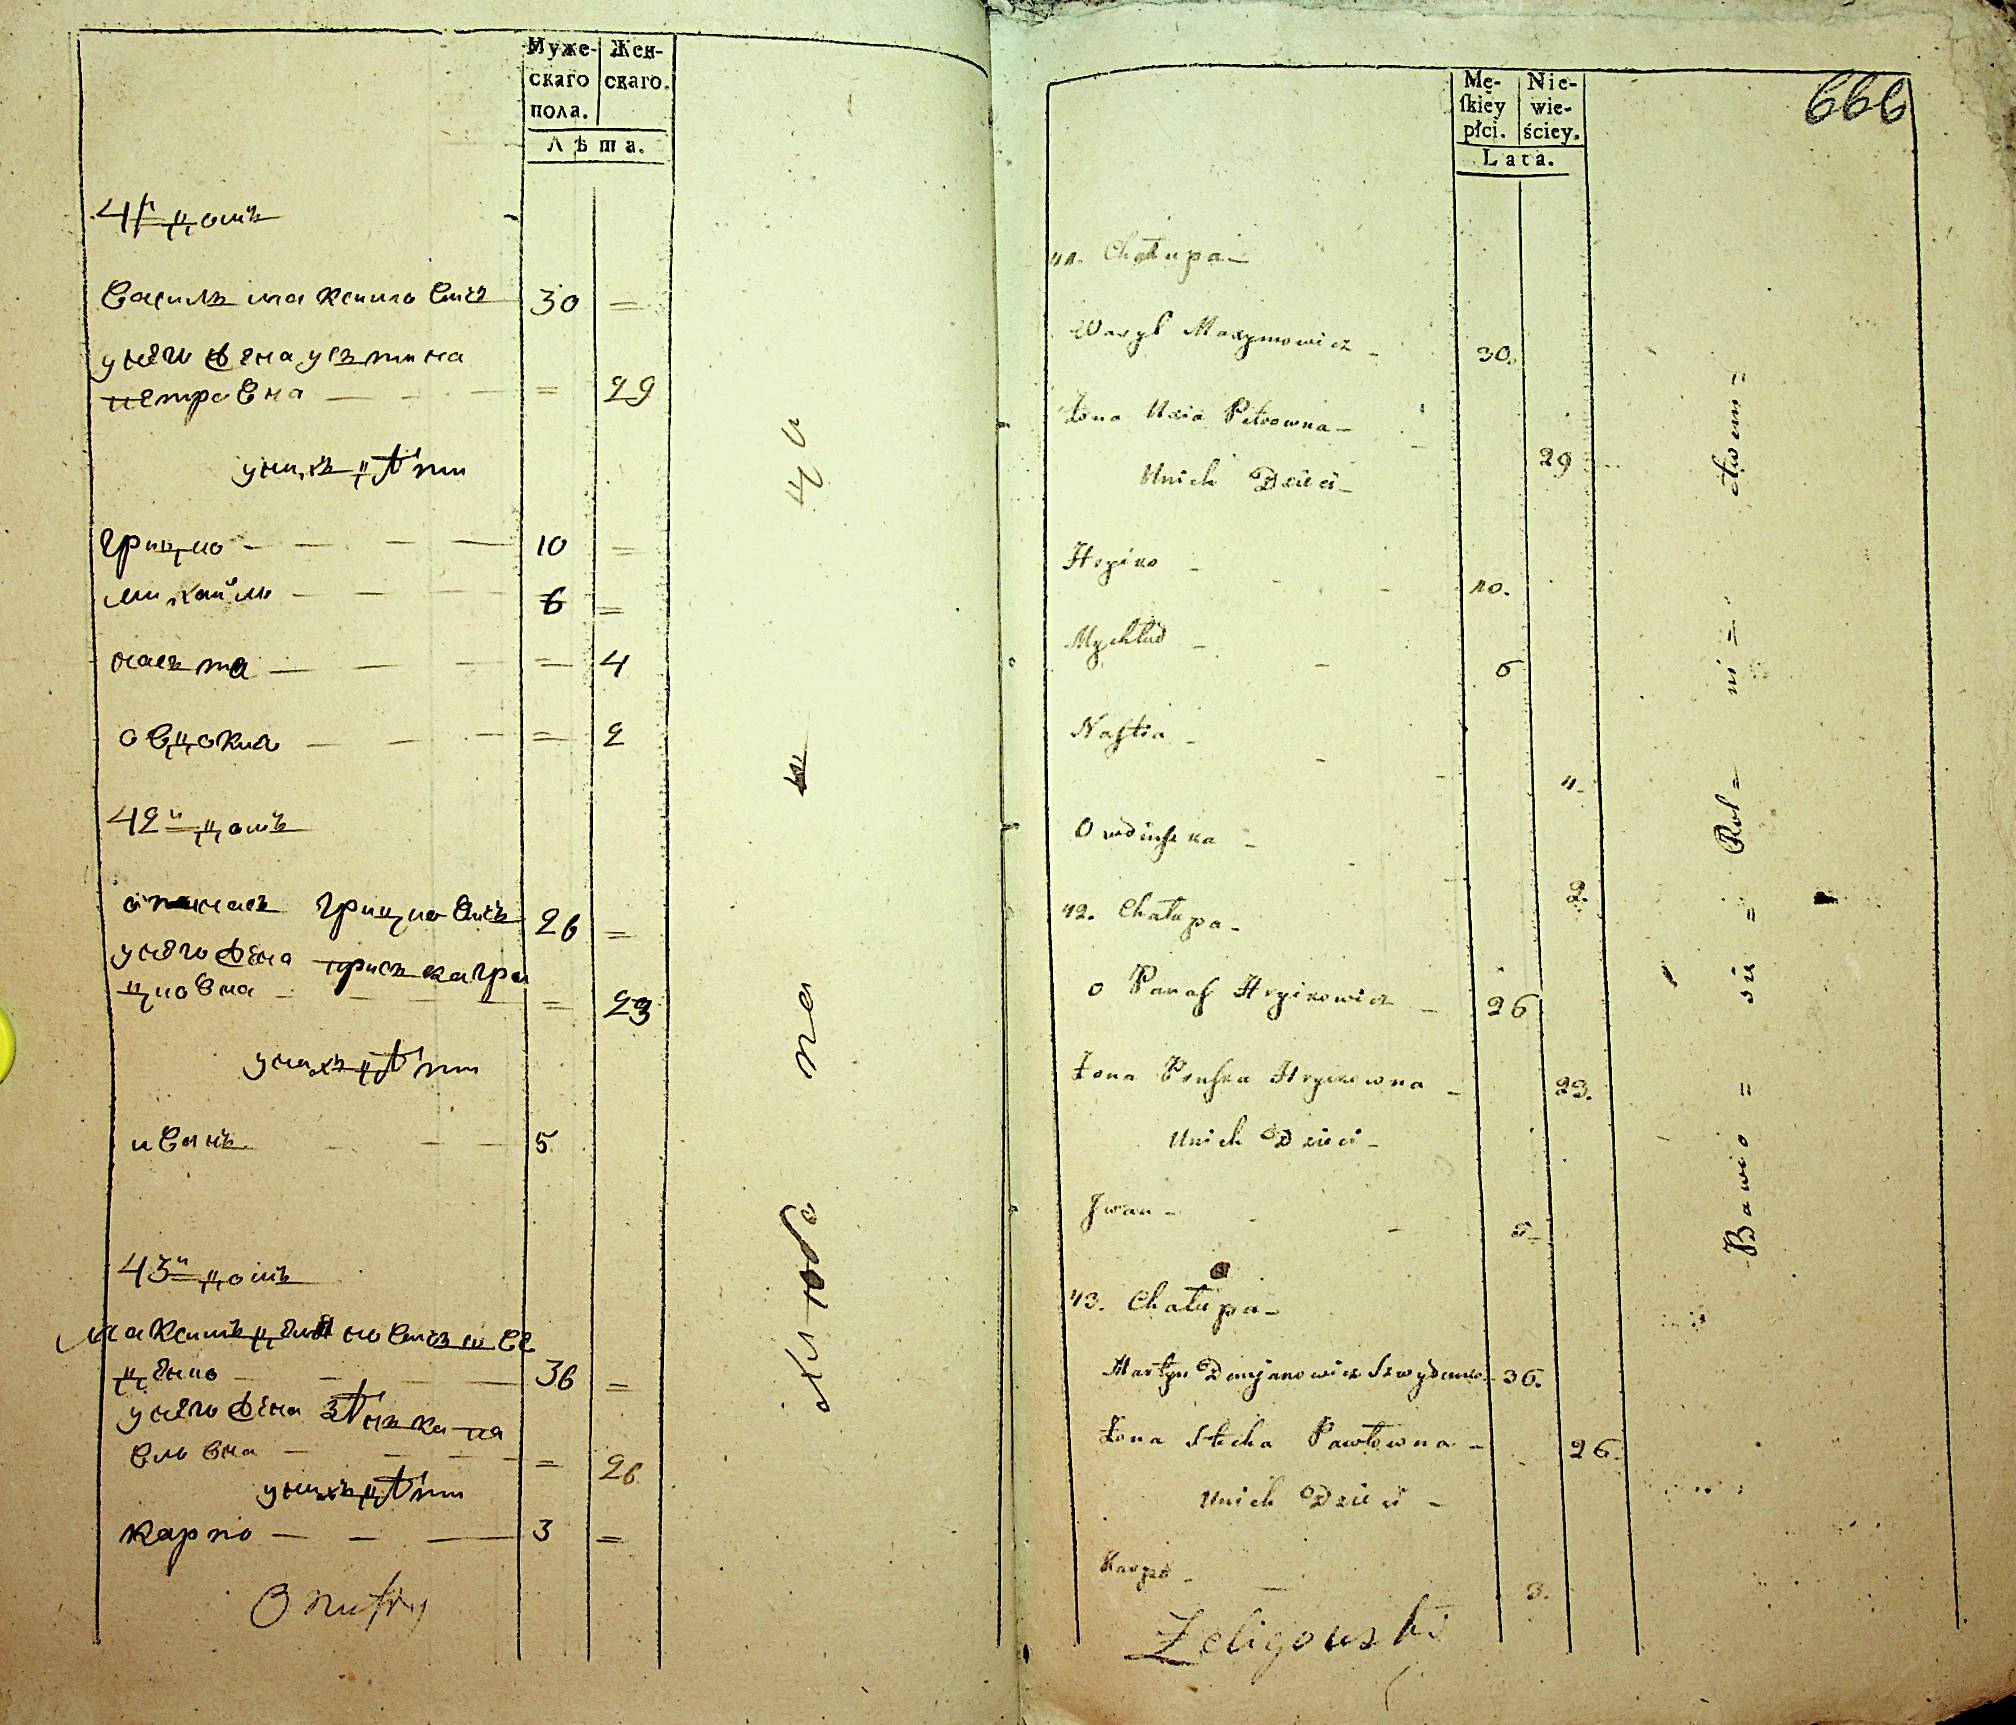 Муже-
скаго
пола.
Жен-
скаго.
Лѣта.
41й домъ
Василь максимовичъ 30 =
унего жена устина
петровна — = 29
унихъ дѣти
грицко — 10 =
михайло — 6 =
настя — = 4
овдокия — = 2
42й домъ
опанасъ грицковичъ 26 =
унего жена приська гри
цковна — = 23
унихъ дѣти
иванъ 5
43й домъ
максимъ демяновичъ шве
денко — 36 =
унего жена стѣшка па
вловна — = 26
унихъ дѣти
карпо — 3 =
Onufry
хлюбо па
Mę-
ſkiey
płci.
Nie-
wie-
ściey.
Lata.
666
41. Chałupa —
Wasyl Maxymowicz — 30.
Żona Petrowna — 29
Unich Dzieci —
Hryćko — 10.
Mychłud — 6
Naſtia — 4.
Owdiuſzka — 2.
42. Chałupa —
O Panaſ Hryćkowicz — 26
Żona Pruſka Hryckowna — 23.
Unich Dzieci —
Jwan — 5
43. Chałupa —
Martyn Demjanowicz Szwydenko — 36.
Żona Stecha Pawłowna — 26.
Unich Dzieci —
Karpo — 3.
Żeligowski
Bawio = sie = Rol = ni = ctwem =